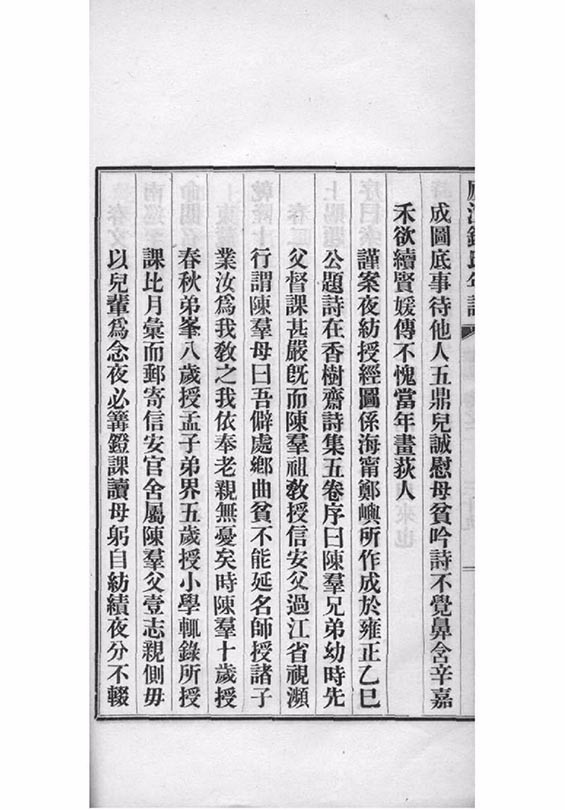 成圖底事待他人五鼎兒誠慰母貧吟詩不覺鼻含辛嘉
禾欲續賢媛傳不愧當年畫荻人
謹案夜紡授經圖係海甯鄭嶼所作成於雍正乙巳
公題詩在香樹齋詩集五卷序曰陳羣兄弟幼時先
父督課甚嚴旣而陳羣祖敎授信安父過江省視瀕
行謂陳羣母曰吾僻處鄕曲貧不能延名師授諸子
業汝爲我敎之我依奉老親無憂矣時陳羣十歲授
春秋弟峯八歲授孟子弟界五歲授小學輒錄所授
課比月彙而郵寄信安官舍屬陳羣父壹志親側毋
以兒輩爲念夜必篝鐙課讀母躬自紡績夜分不輟